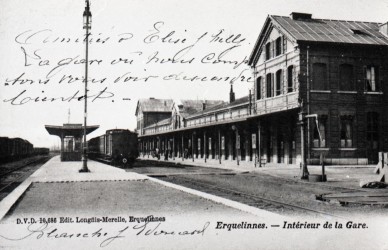 Amitiés à Elise & Jules
La gare où nous comp
tons vous voir descendre
bientôt
D.V.D. 10,686 Edit. Longfils-Merelle, Erquelinnes
Erquelinnes. — Intérieur de la Gare.
Blanche &